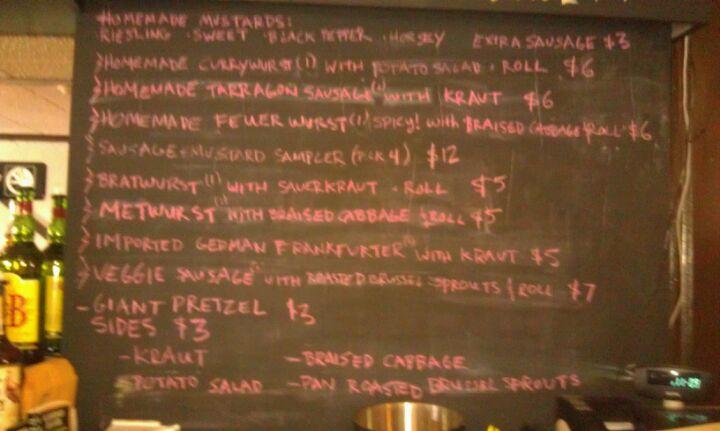 HOMEMADE MUSTARDS:
RIESLING · SWEET · BLACK PEPPER · HORSEY EXTRA SAUSAGE $3
HOMEMADE CURRYWURST (1) WITH POTATO SALAD + ROLL $6
HOMEMADE TARRAGON SAUSAGE (1) WITH KRAUT $6
HOMEMADE FEUERWURST (1) SPICY! WITH BRAISED CABBAGE & ROLL $6
SAUSAGE + MUSTARD SAMPLER (PICK 4) $12
BRATWURST (1) WITH SAUERKRAUT + ROLL $5
METWURST (1) WITH BRAISED CABBAGE & ROLL $5
IMPORTED GERMAN FRANKFURTER (1) WITH KRAUT $5
VEGGIE SAUSAGE WITH ROASTED BRUSSEL SPROUTS & ROLL $7
- GIANT PRETZEL $3
SIDES $3
- KRAUT - BRAISED CABBAGE
- POTATO SALAD - PAN ROASTED BRUSSEL SPROUTS
B